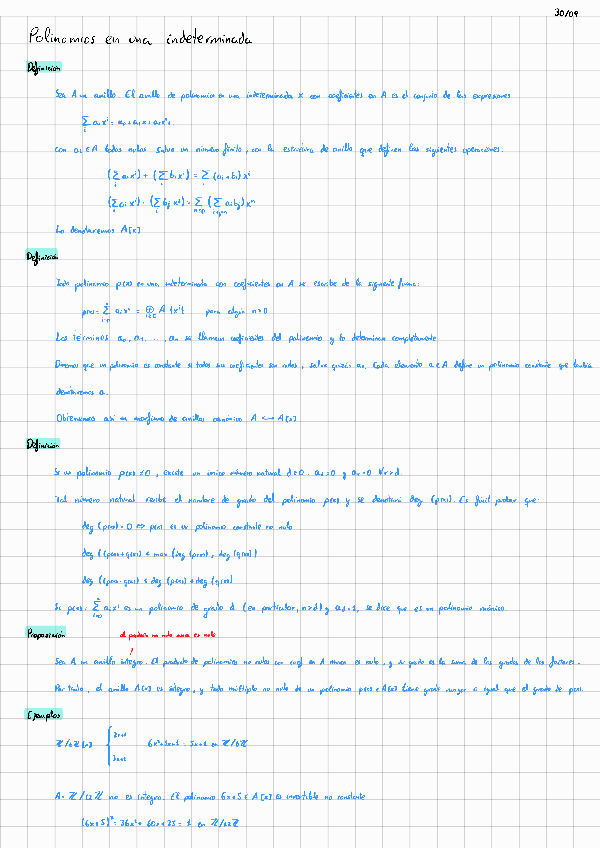 30/09
Polinomios en una indeterminada
Definición
Sea A un anillo. El anillo de polinomios en una indeterminada x con coeficientes en A es el conjunto de las expresiones
∑ aᵢxⁱ = a₀ + a₁x + a₂x²...
con aᵢ ∈ A todos nulos salvo un número finito, con la estructura de anillo que definen las siguientes operaciones:
(∑ aᵢxⁱ) + (∑ bᵢxⁱ) = ∑ (aᵢ+bᵢ)xⁱ
(∑ aᵢxⁱ) · (∑ bⱼxʲ) = ∑ (∑ aᵢbⱼ)xⁿ
Lo denotaremos A[x]
Definición
Todo polinomio p(x) en una indeterminada con coeficientes en A se escribe de la siguiente forma:
p(x) = ∑ aᵢxⁱ = ⊕ A{xⁱ} para algún n≥0
Los términos a₀, a₁, ..., aₙ se llaman coeficientes del polinomio y lo determinan completamente
Diremos que un polinomio es constante si todos sus coeficientes son nulos, salvo quizás a₀. Cada elemento a∈A define un polinomio constante que también
denotaremos a.
Obtenemos así un morfismo de anillos canónico A ↪ A[x]
Definición
Si un polinomio p(x) ≠ 0, existe un único número natural d≥0: a_d ≠ 0 y aᵣ = 0 ∀r>d
Tal número natural recibe el nombre de grado del polinomio p(x) y se denotará deg (p(x)). Es fácil probar que:
deg (p(x)) = 0 ⇔ p(x) es un polinomio constante no nulo
deg (p(x)+q(x)) ≤ max (deg (p(x)), deg (q(x)))
deg (p(x)·q(x)) ≤ deg (p(x)) + deg (q(x))
Si p(x) = ∑ aᵢxⁱ es un polinomio de grado d (en particular, n≥d) y a_d = 1, se dice que es un polinomio mónico.
Proposición
el producto no nulo nunca es nulo
Sea A un anillo íntegro. El producto de polinomios no nulos con coef en A nunca es nulo, y su grado es la suma de los grados de los factores.
Por tanto, el anillo A[x] es íntegro, y todo múltiplo no nulo de un polinomio p(x) ∈ A[x] tiene grado mayor o igual que el grado de p(x).
Ejemplos
ℤ/6ℤ[x] { 2x+1
6x²+5x+1 = 5x+1 en ℤ/6ℤ
3x+1
A = ℤ/12ℤ no es íntegro. El polinomio 6x+5 ∈ A[x] es invertible no constante
(6x+5)² = 36x² + 60x + 25 = 1 en ℤ/12ℤ